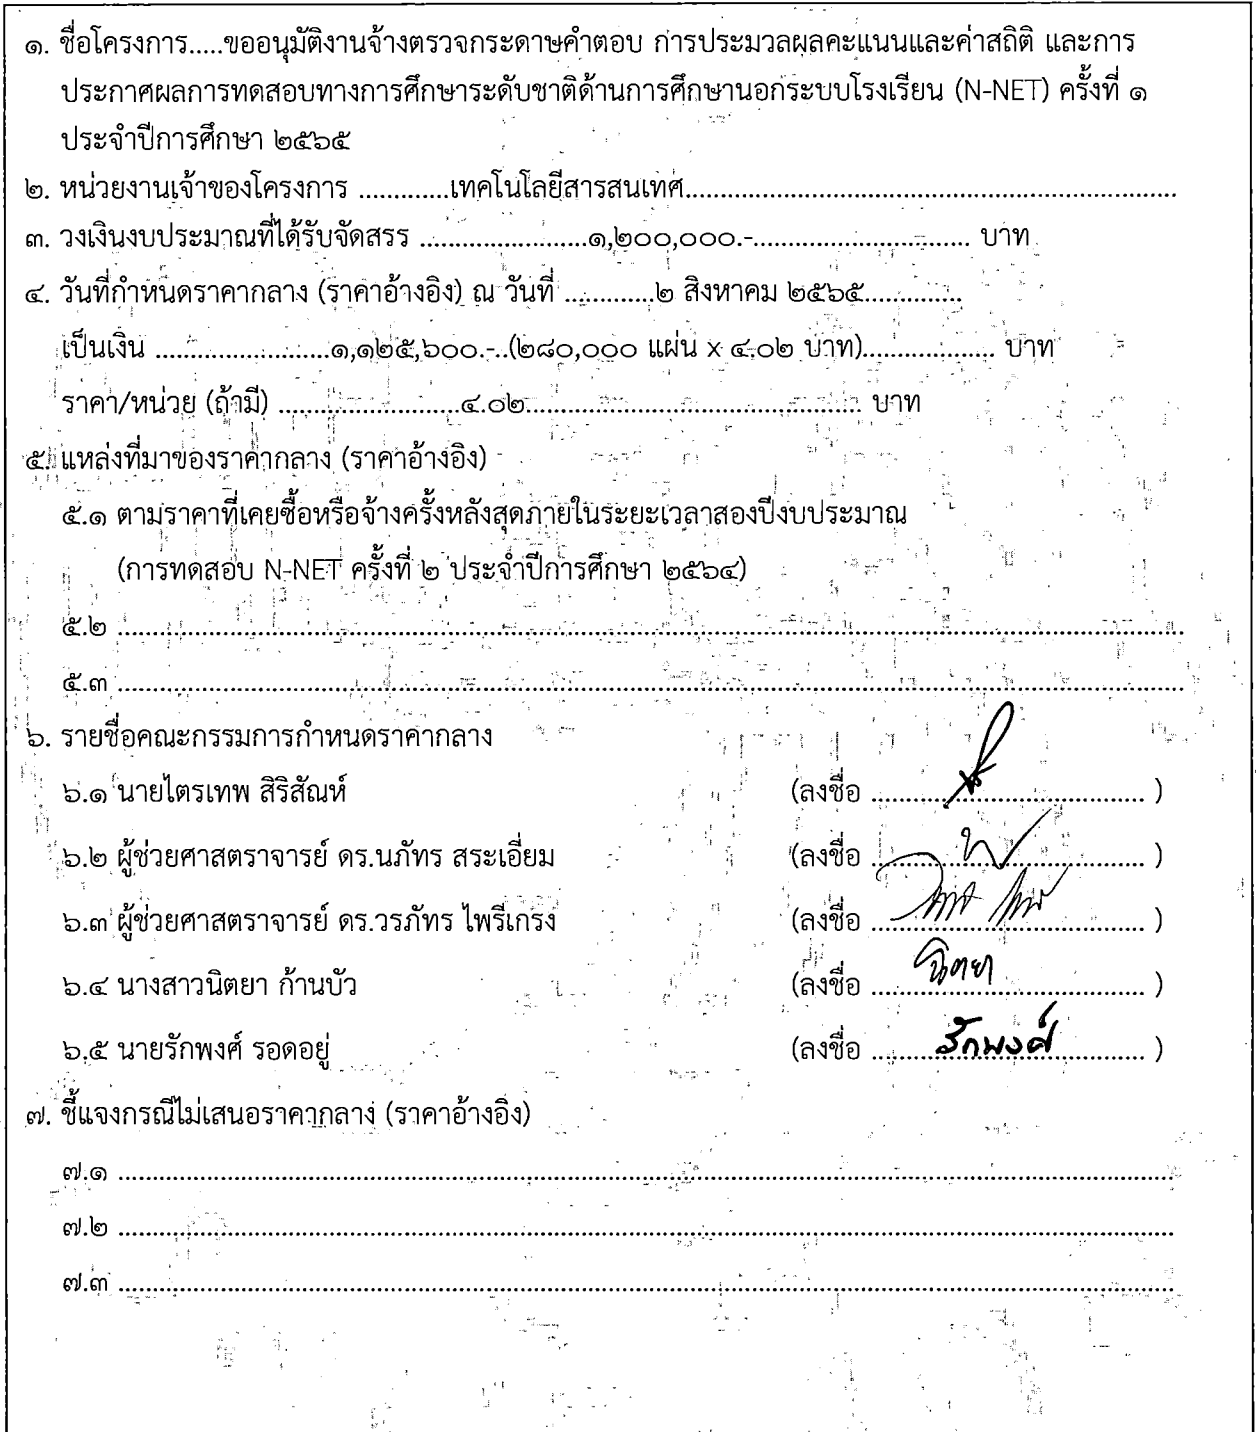 ๑. ชื่อโครงการ.....ขออนุมัติงานจ้างตรวจกระดาษคำตอบ การประมวลผลคะแนนและค่าสถิติ และการ
ประกาศผลการทดสอบทางการศึกษาระดับชาติด้านการศึกษานอกระบบโรงเรียน (N-NET) ครั้งที่ ๑
ประจำปีการศึกษา ๒๕๖๕
๒. หน่วยงานเจ้าของโครงการ .............เทคโนโลยีสารสนเทศ......................................................
๓. วงเงินงบประมาณที่ได้รับจัดสรร ........................๑,๒๐๐,๐๐๐.-............................... บาท
๔. วันที่กำหนดราคากลาง (ราคาอ้างอิง) ณ วันที่ .............๒ สิงหาคม ๒๕๖๕..............
เป็นเงิน .........................๑,๑๒๕,๖๐๐.-..(๒๘๐,๐๐๐ แผ่น x ๔.๐๒ บาท)................... บาท
ราคา/หน่วย (ถ้ามี) ..........................๔.๐๒................................................ บาท
๕. แหล่งที่มาของราคากลาง (ราคาอ้างอิง)
๕.๑ ตามราคาที่เคยซื้อหรือจ้างครั้งหลังสุดภายในระยะเวลาสองปีงบประมาณ
(การทดสอบ N-NET ครั้งที่ ๒ ประจำปีการศึกษา ๒๕๖๔)
๕.๒ ........................................................................................................................
๕.๓ ........................................................................................................................
๖. รายชื่อคณะกรรมการกำหนดราคากลาง
๖.๑ นายไตรเทพ สิริสัณห์ (ลงชื่อ ....................................... )
๖.๒ ผู้ช่วยศาสตราจารย์ ดร.นภัทร สระเอี่ยม (ลงชื่อ ....................................... )
๖.๓ ผู้ช่วยศาสตราจารย์ ดร.วรภัทร ไพรีเกรง (ลงชื่อ ....................................... )
๖.๔ นางสาวนิตยา ก้านบัว (ลงชื่อ .......นิตยา....................... )
๖.๕ นายรักพงศ์ รอดอยู่ (ลงชื่อ .........รักพงศ์.............. )
๗. ชี้แจงกรณีไม่เสนอราคากลาง (ราคาอ้างอิง)
๗.๑ ........................................................................................................................
๗.๒ ........................................................................................................................
๗.๓ ........................................................................................................................